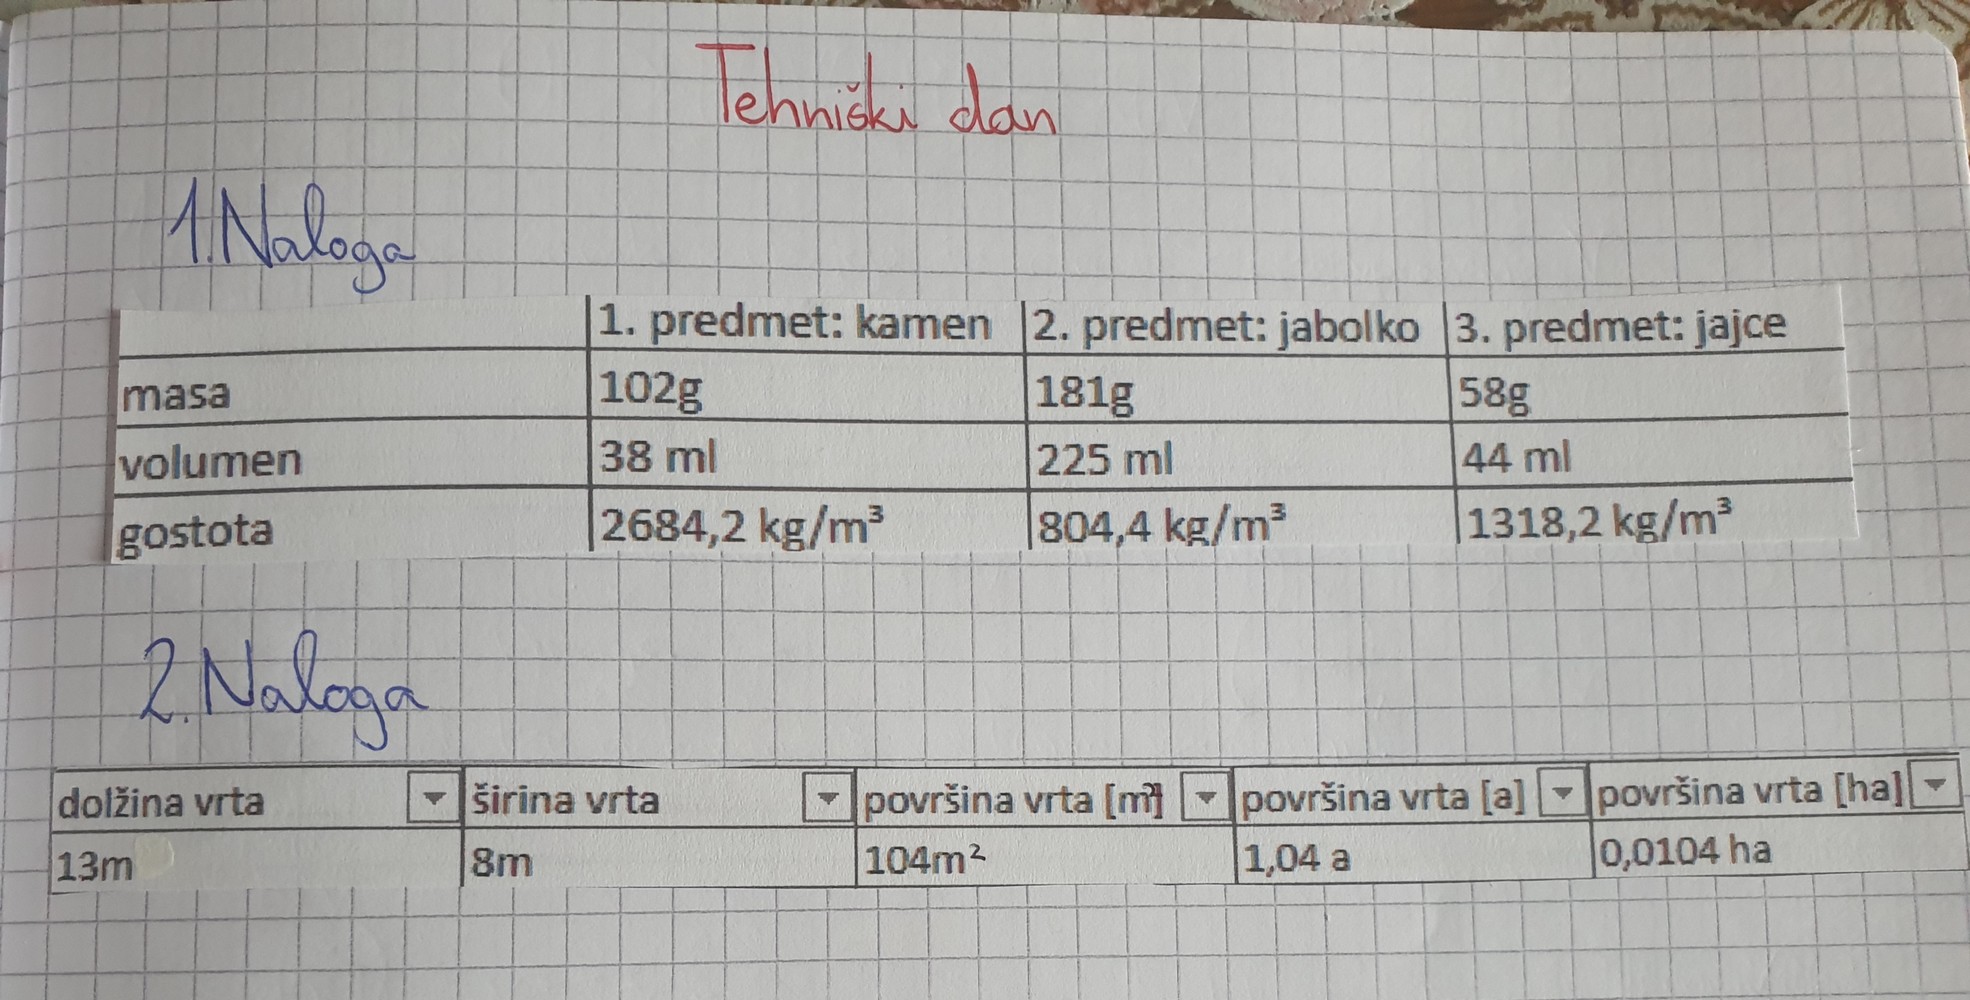 Tehniški dan
1. Naloga
1. predmet: kamen 2. predmet: jabolko 3. predmet: jajce
masa 102g 181g 58g
volumen 38 ml 225 ml 44 ml
gostota 2684,2 kg/m³ 804,4 kg/m³ 1318,2 kg/m³
2. Naloga
dolžina vrta širina vrta površina vrta [m²] površina vrta [a] površina vrta [ha]
13m 8m 104m² 1,04 a 0,0104 ha